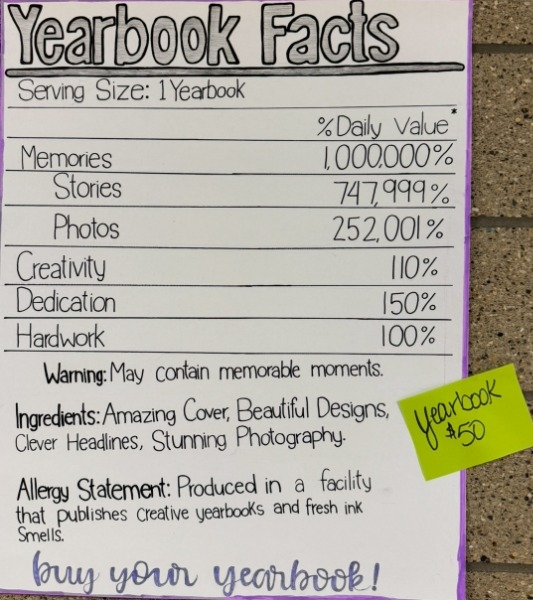 Yearbook Facts
Serving Size: 1 Yearbook
% Daily Value*
Memories 1,000,000%
Stories 747,999%
Photos 252,001%
Creativity 110%
Dedication 150%
Hardwork 100%
Warning: May contain memorable moments.
Ingredients: Amazing Cover, Beautiful Designs,
Clever Headlines, Stunning Photography.
yearbook
$50
Allergy Statement: Produced in a facility
that publishes creative yearbooks and fresh ink
Smells.
buy your yearbook!